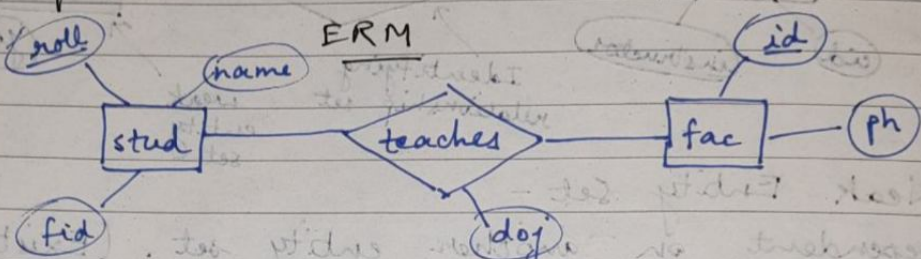 ERM
roll
name
id
stud
teaches
fac
ph
fid
doj